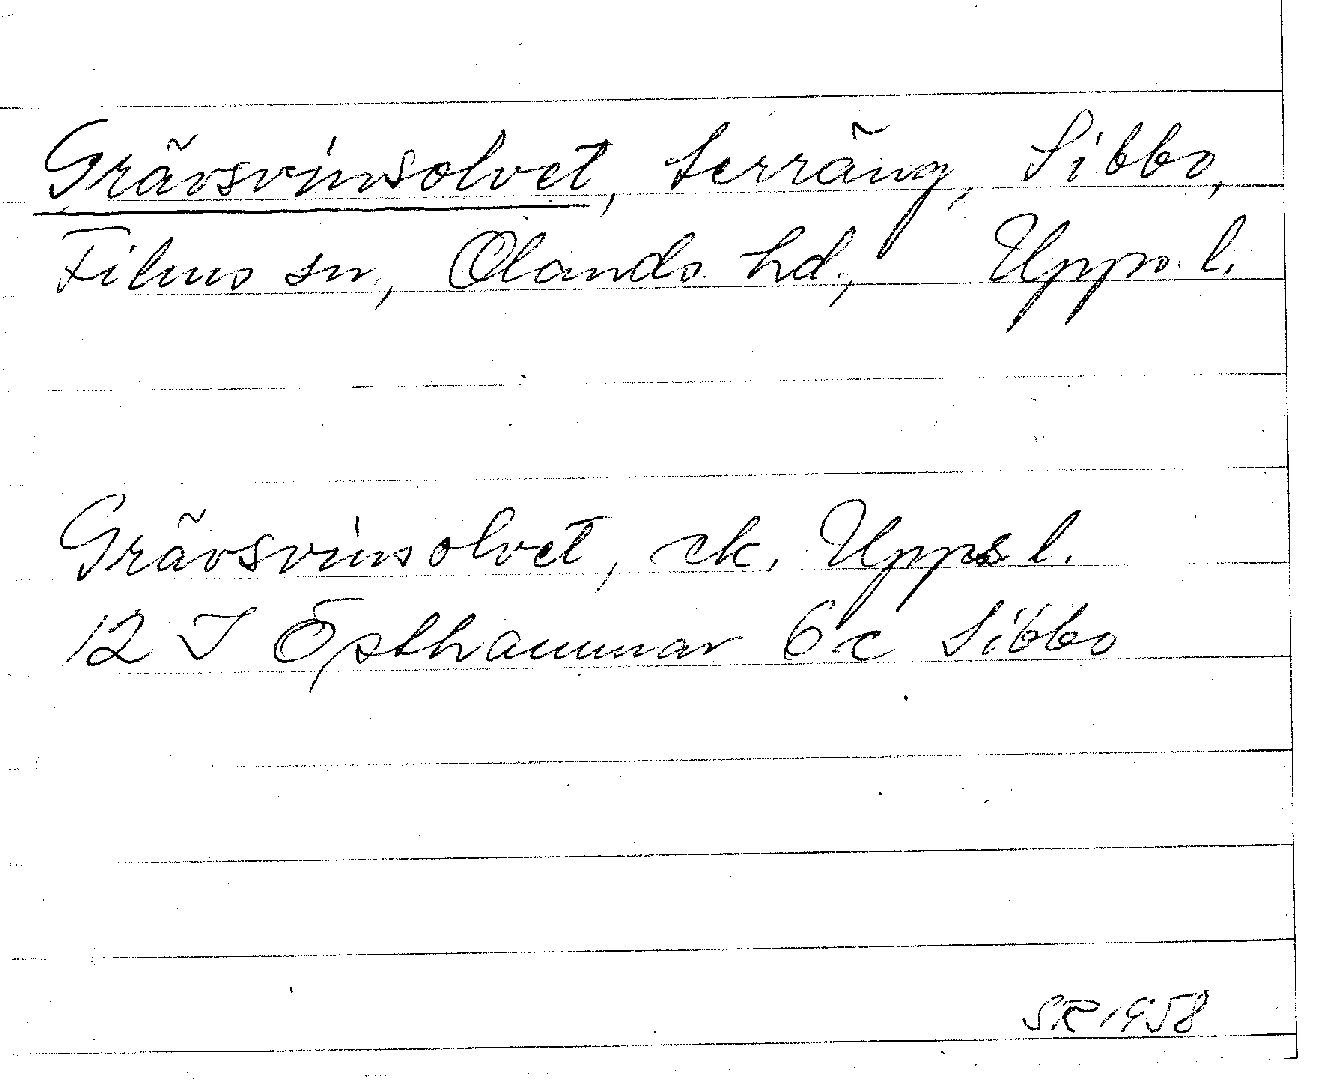 Grävsvinsolvet, terräng, Sibbo,
Films sn, Olands hd, Upps. l.
Grävsvinsolvet, ek. Upps l.
12 I Östhammar 6c Sibbo
SR 1958